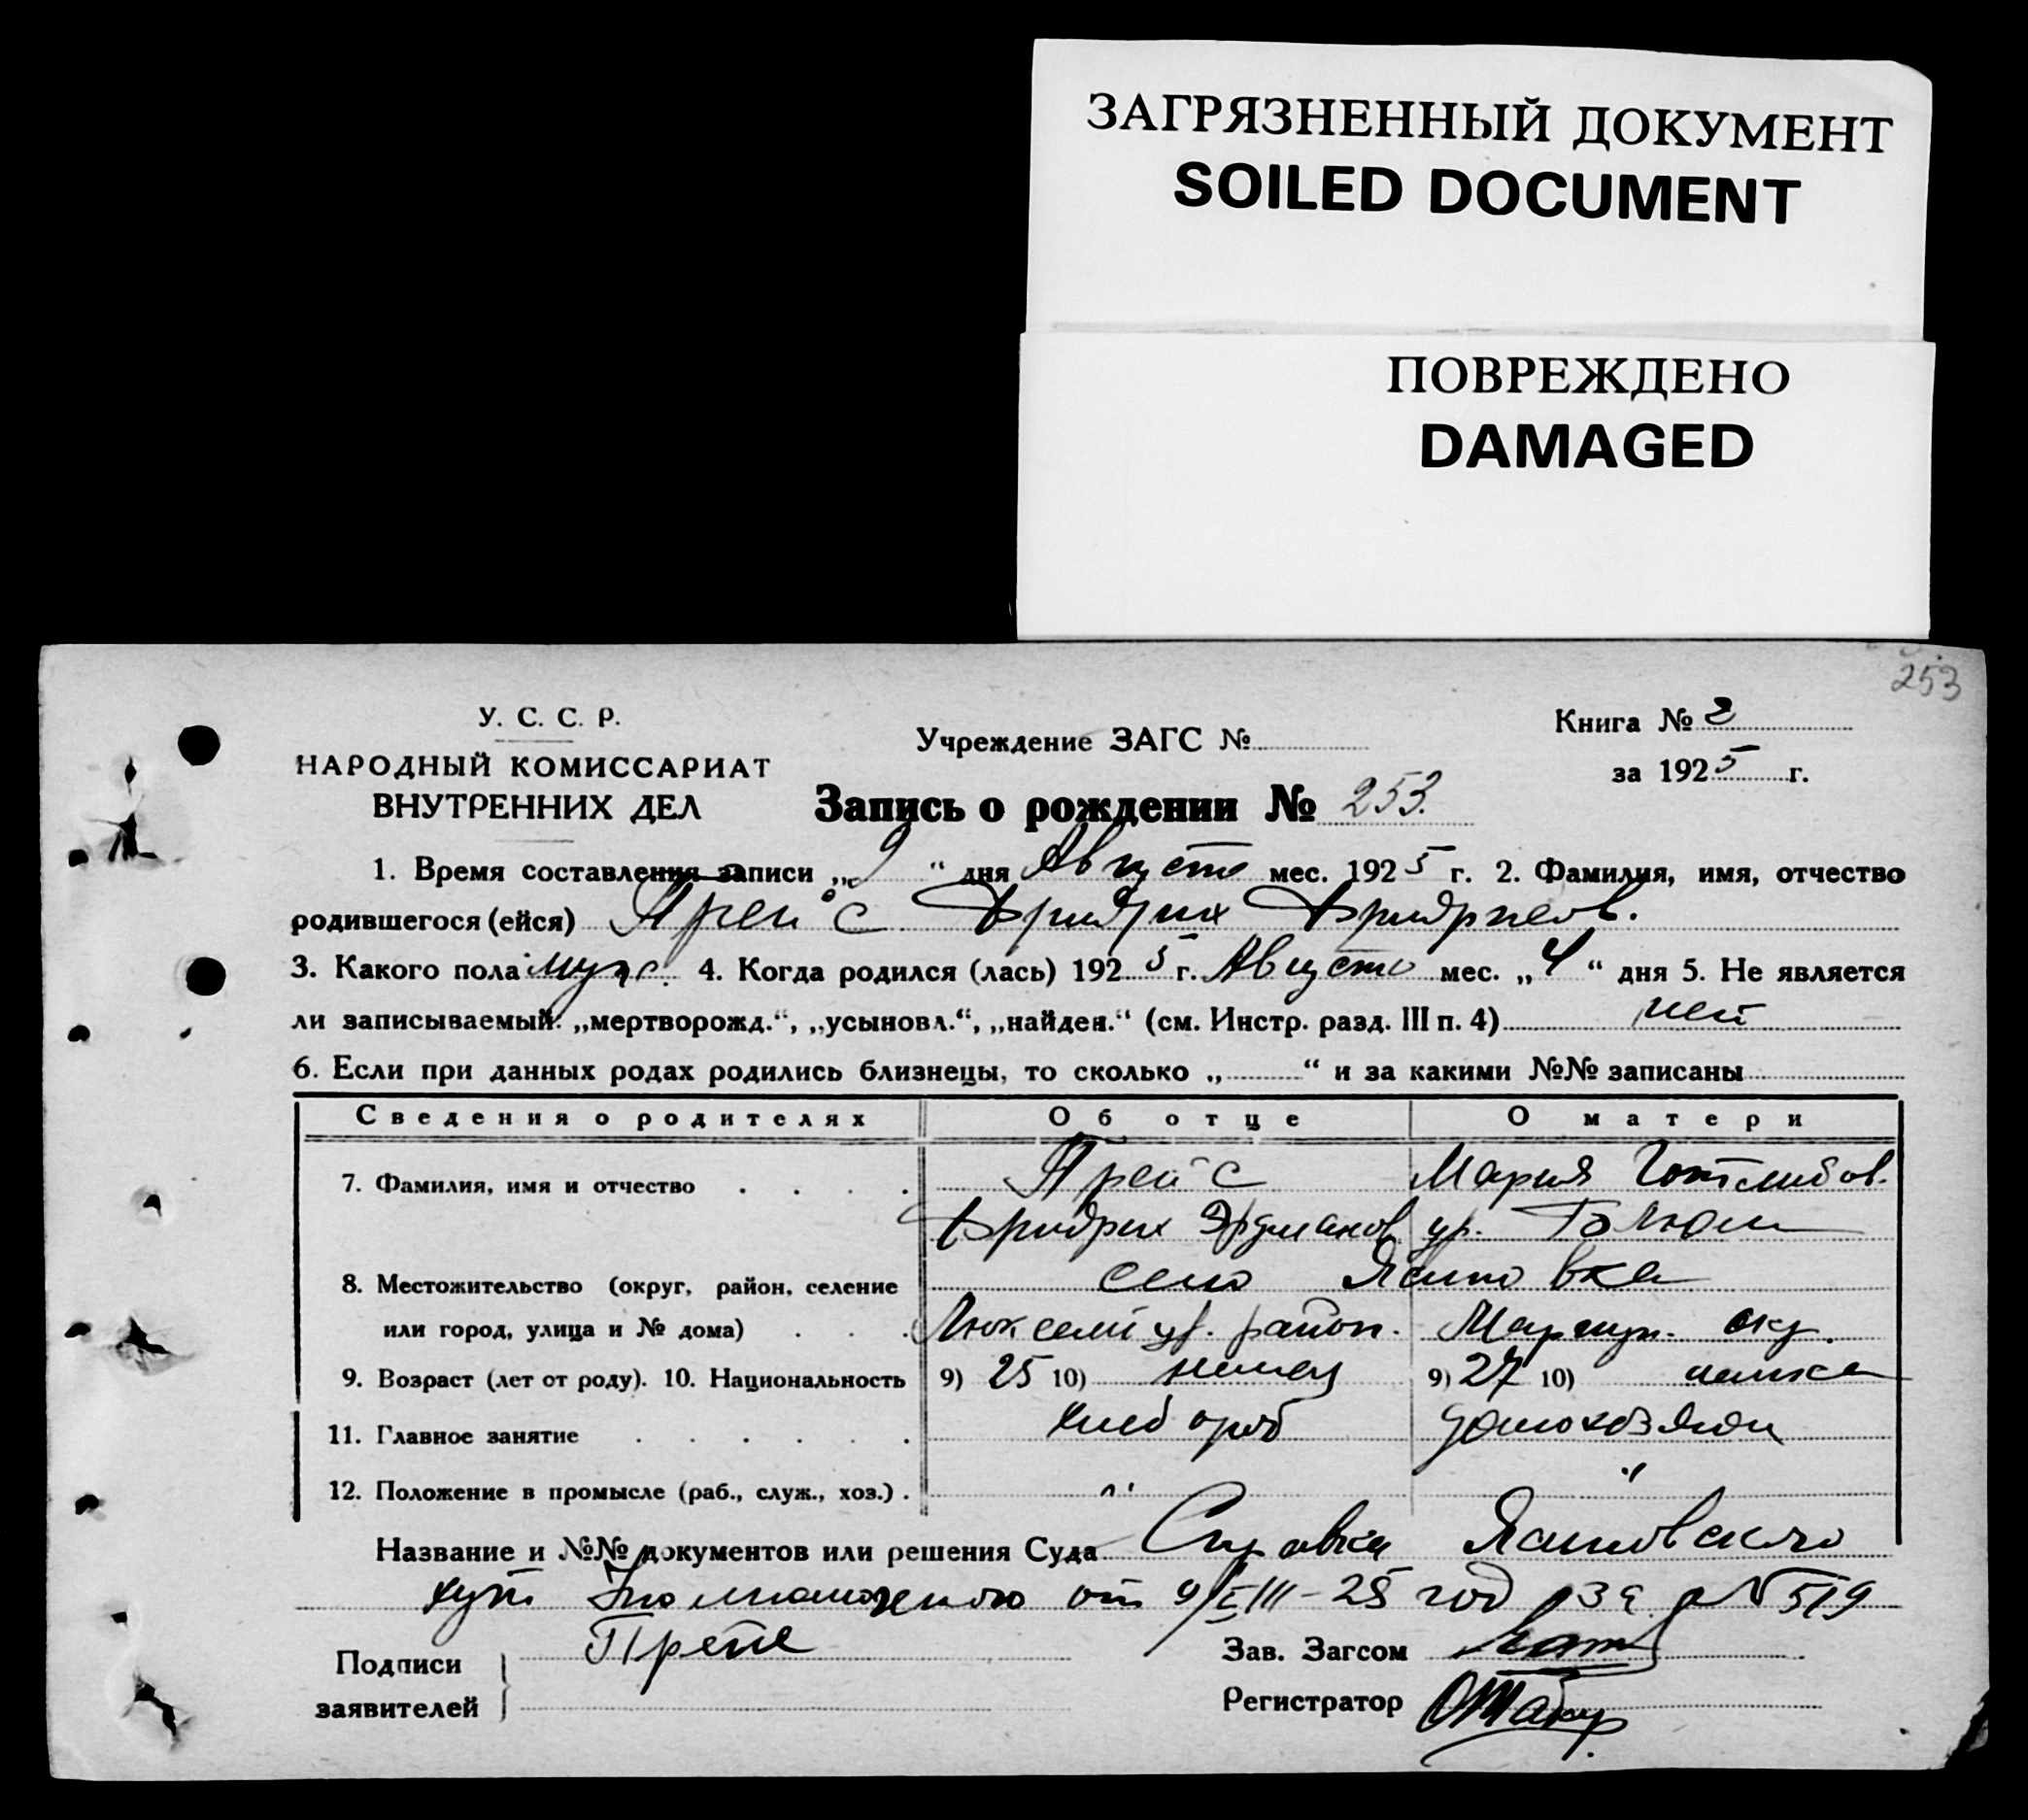 ЗАГРЯЗНЕННЫЙ ДОКУМЕНТ
SOILED DOCUMENT
ПОВРЕЖДЕНО
DAMAGED
253
У. С. С. Р.
НАРОДНЫЙ КОМИССАРИАТ
ВНУТРЕННИХ ДЕЛ
Учреждение ЗАГС №
Книга № 2
за 1925 г.
Запись о рождении № 253.
1. Время составления записи „9“ дня Августа мес. 1925 г. 2. Фамилия, имя, отчество
родившегося (ейся) Прейс Фридрих Фридрихов.
3. Какого пола муж. 4. Когда родился (лась) 1925 г. Августа мес. „4“ дня 5. Не является
ли записываемый: „мертворожд.“, „усыновл.“, „найден.“ (см. Инстр. разд. III п. 4) нет
6. Если при данных родах родились близнецы, то сколько „ “ и за какими №№ записаны
Сведения о родителях Об отце О матери
7. Фамилия, имя и отчество . . . . Прейс Мария Готлибов.
Фридрих Эрдманов ур. Блюм
8. Местожительство (округ, район, селение село Яшновка
или город, улица и № дома) . . . Люксембург. район. Мариуп. окр.
9. Возраст (лет от роду). 10. Национальность 9) 25 10) немец 9) 27 10) немка
11. Главное занятие . . . . . . хлебороб домохозяй
12. Положение в промысле (раб., служ., хоз.) . " "
Название и №№ документов или решения Суда Справка
от 9/VIII-25 год за № 519
Подписи
заявителей
Прейс
Зав. Загсом
Регистратор